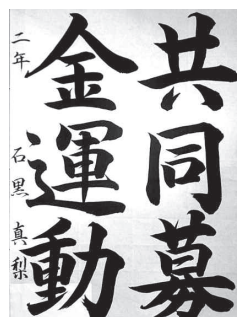 共同募
金運動
二年 石黒真梨